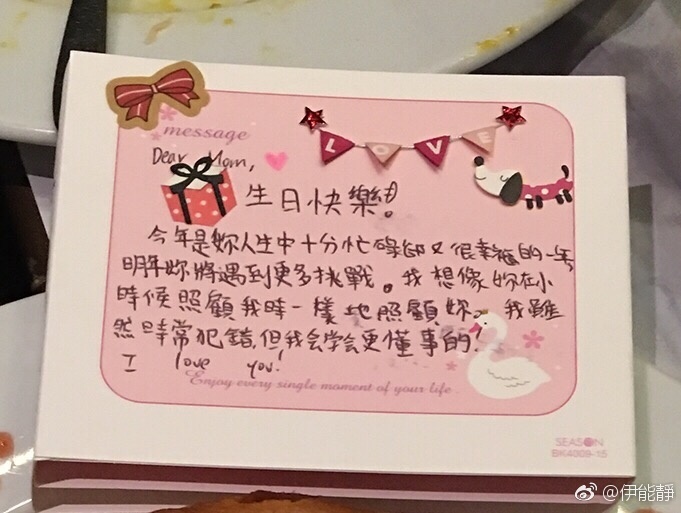 message
Dear Mom,
LOVE
生日快樂!
今年是妳人生中十分忙碌卻又很幸福的一年
明年妳將遇到更多挑戰。我想像妳在小
時候照顧我時一樣地照顧妳。我雖
然時常犯錯,但我会学会更懂事的!
I love you!
Enjoy every single moment of your life.
SEASON
BK4009-15
@伊能靜